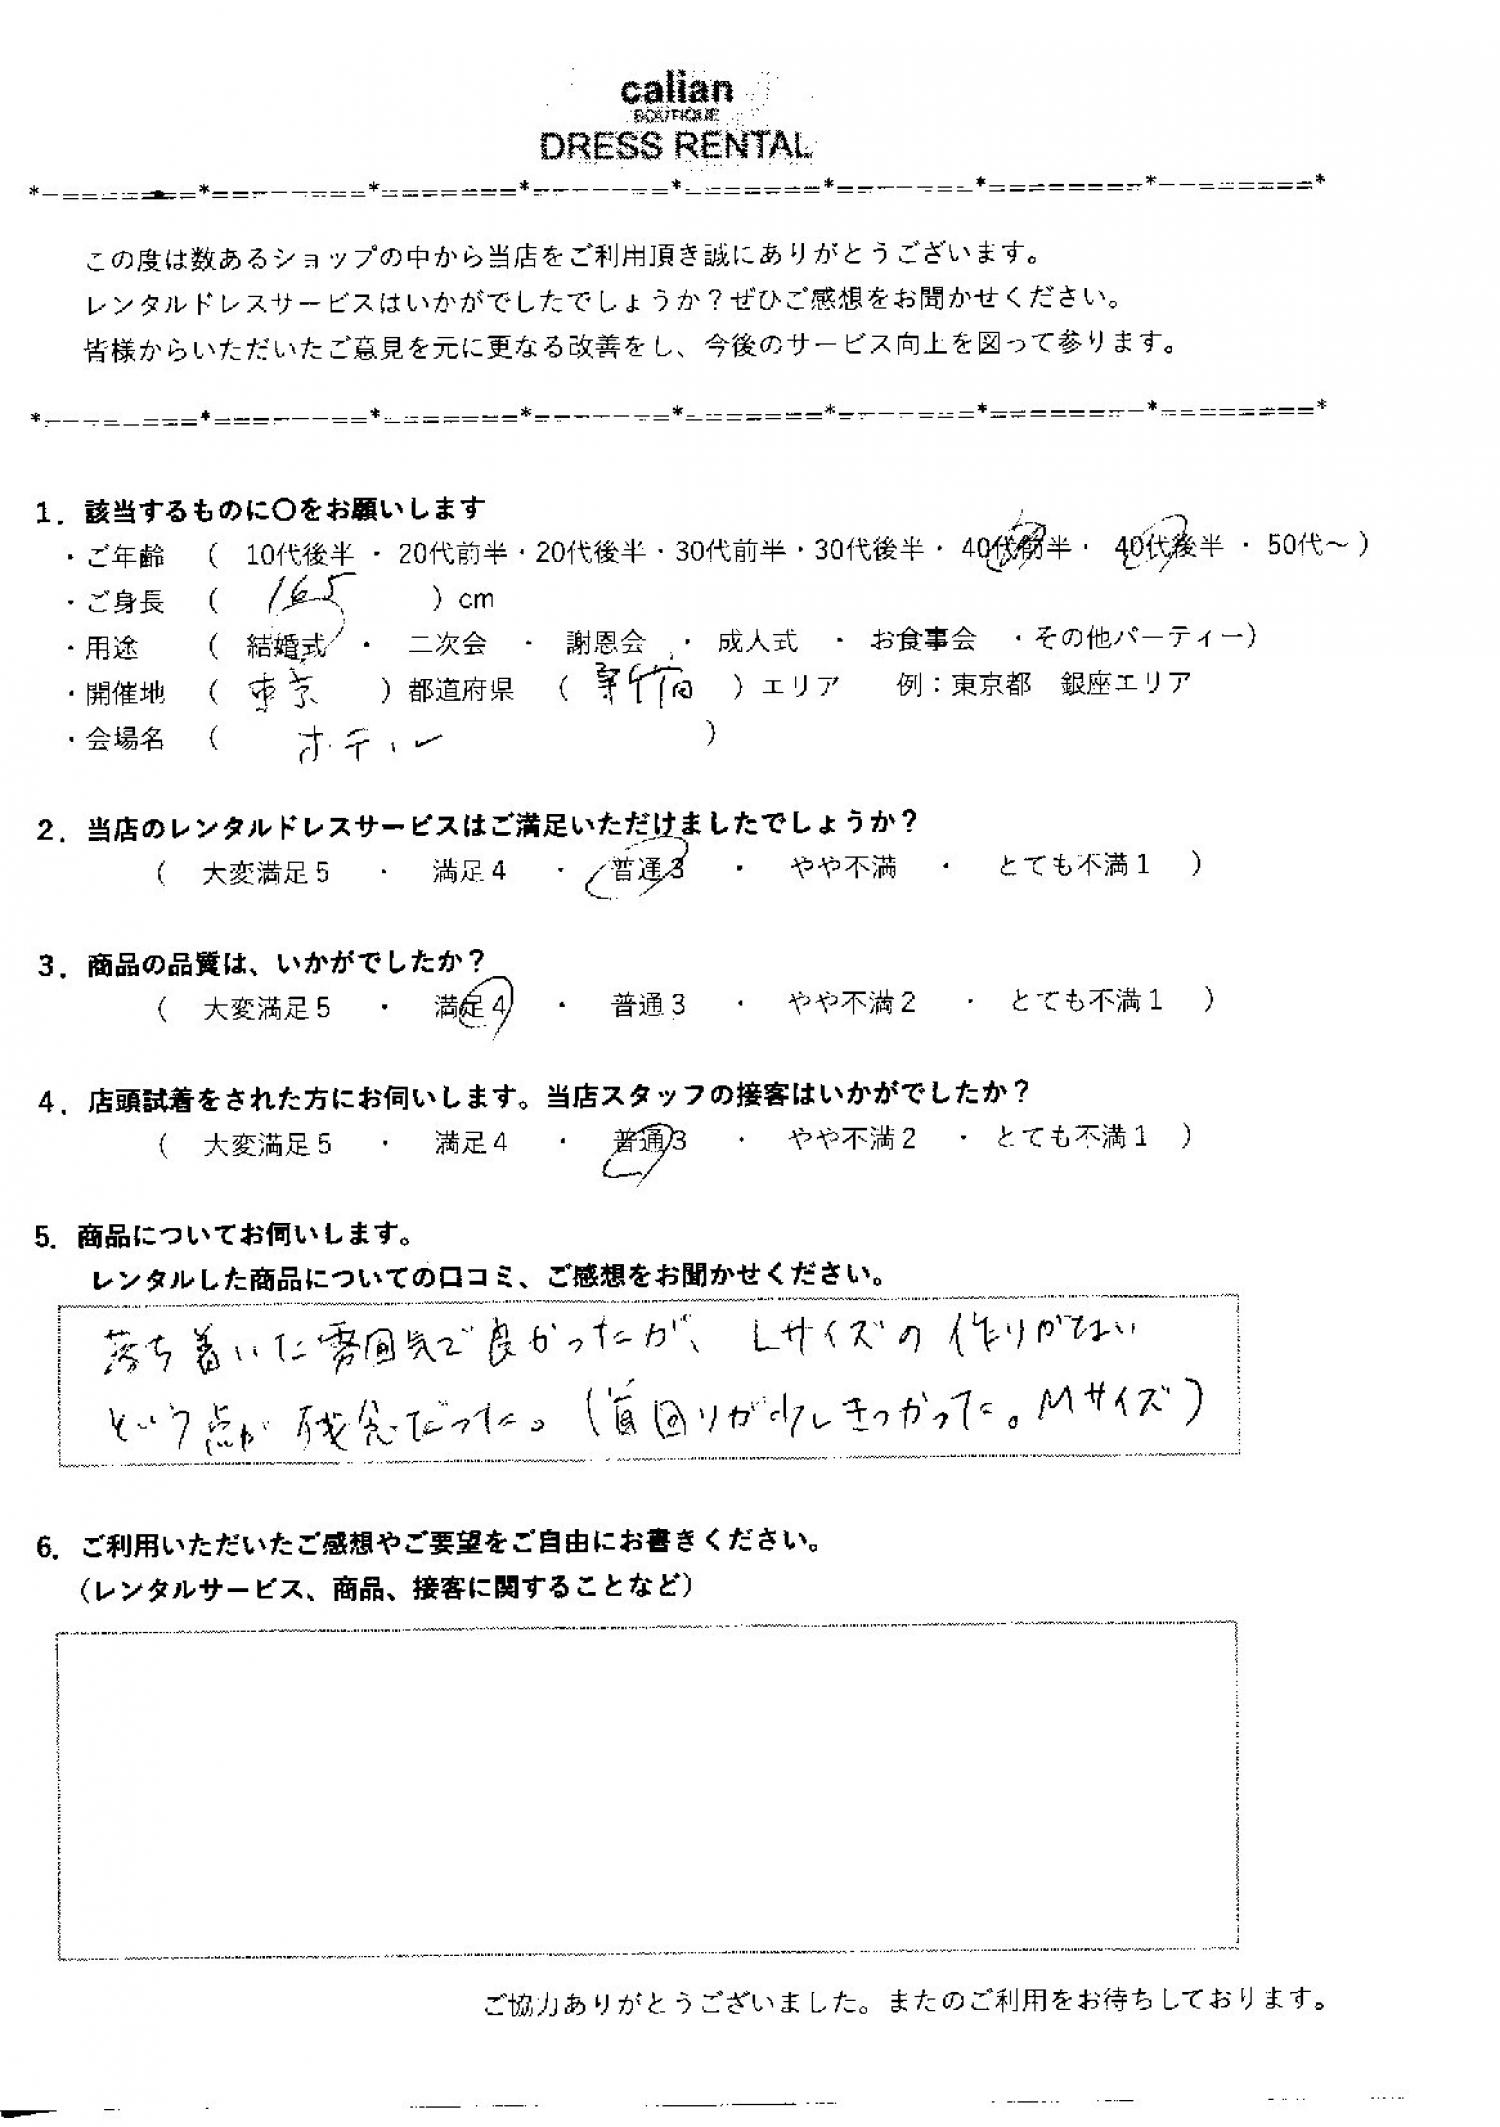 calian
BOUTIQUE
DRESS RENTAL
この度は数あるショップの中から当店をご利用頂き誠にありがとうございます。
レンタルドレスサービスはいかがでしたでしょうか？ぜひご感想をお聞かせください。
皆様からいただいたご意見を元に更なる改善をし、今後のサービス向上を図って参ります。
1．該当するものに〇をお願いします
・ご年齢 （ 10代後半 ・ 20代前半・20代後半・30代前半・30代後半・ 40代前半・ 40代後半 ・ 50代～ ）
・ご身長 （ 165 ）cm
・用途 （ 結婚式 ・ 二次会 ・ 謝恩会 ・ 成人式 ・ お食事会 ・その他パーティー）
・開催地 （ 東京 ）都道府県 （ 新宿 ）エリア 例：東京都 銀座エリア
・会場名 （ ホテル ）
2．当店のレンタルドレスサービスはご満足いただけましたでしょうか？
（ 大変満足５ ・ 満足４ ・ 普通３ ・ やや不満 ・ とても不満１ ）
3．商品の品質は、いかがでしたか？
（ 大変満足５ ・ 満足４ ・ 普通３ ・ やや不満２ ・ とても不満１ ）
4．店頭試着をされた方にお伺いします。当店スタッフの接客はいかがでしたか？
（ 大変満足５ ・ 満足４ ・ 普通３ ・ やや不満２ ・ とても不満１ ）
5．商品についてお伺いします。
レンタルした商品についての口コミ、ご感想をお聞かせください。
落ち着いた雰囲気で良かったが、Lサイズの作りがない
という点が残念だった。（首回りが少しきつかった。Mサイズ）
6．ご利用いただいたご感想やご要望をご自由にお書きください。
（レンタルサービス、商品、接客に関することなど）
ご協力ありがとうございました。またのご利用をお待ちしております。